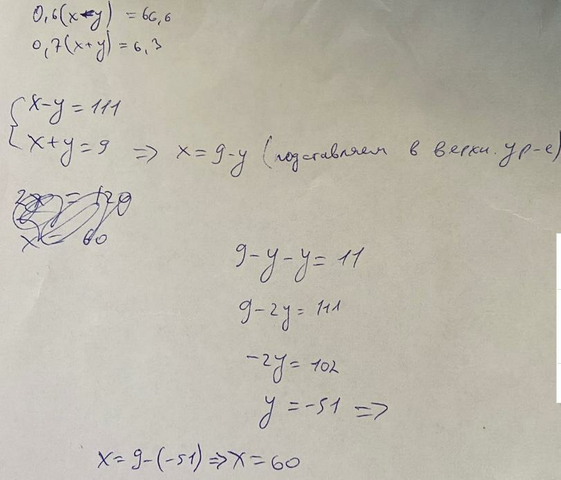 0,6(x-y) = 66,6
0,7(x+y) = 6,3
{ x-y = 111
x+y = 9 => x = 9-y (подставляем в верхн. ур-е)
2x = 120
x = 60
9-y-y = 11
9-2y = 111
-2y = 102
y = -51 =>
x = 9-(-51) => x = 60